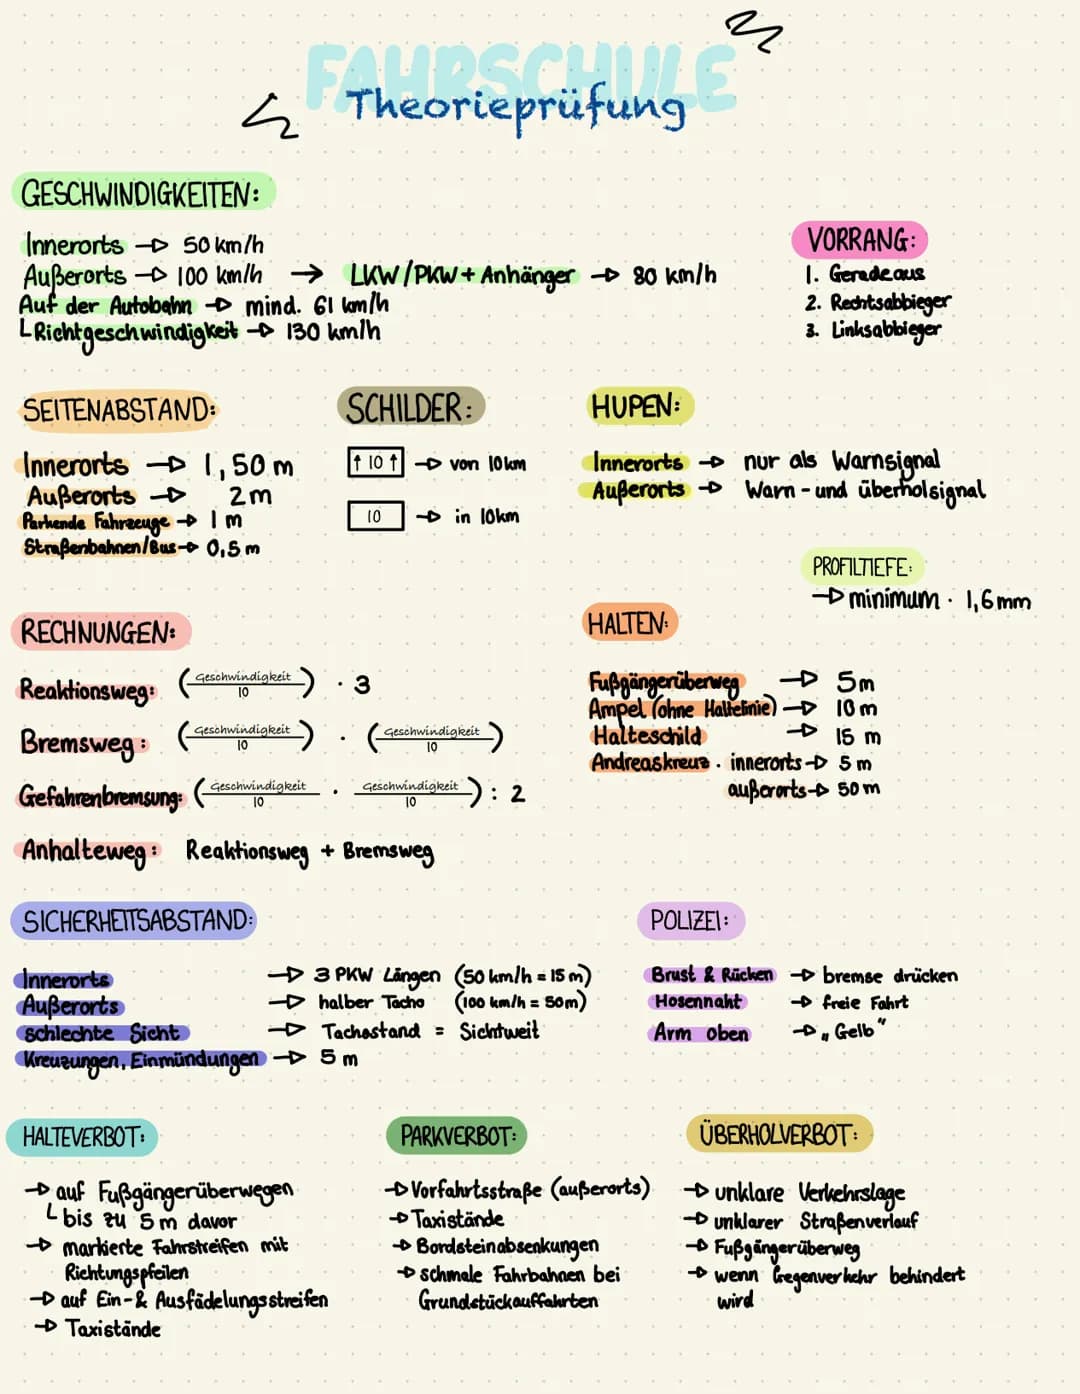 FAHRSCHULE
Theorieprüfung
GESCHWINDIGKEITEN:
Innerorts → 50 km/h
Außerorts → 100 km/h → LKW/PKW + Anhänger → 80 km/h
Auf der Autobahn → mind. 61 km/h
Richtgeschwindigkeit → 130 km/h
VORRANG:
1. Geradeaus
2. Rechtsabbieger
3. Linksabbieger
SEITENABSTAND:
Innerorts → 1,50 m
Außerorts → 2 m
Parkende Fahrzeuge → 1 m
Straßenbahnen/Bus → 0,5 m
SCHILDER:
↑ 10 ↑ → von 10 km
10 → in 10km
HUPEN:
Innerorts → nur als Warnsignal
Außerorts → Warn-und überholsignal
PROFILTIEFE:
→ minimum. 1,6 mm
RECHNUNGEN:
Reaktionsweg: (Geschwindigkeit/10) · 3
Bremsweg: (Geschwindigkeit/10) · (Geschwindigkeit/10)
Gefahrenbremsung: (Geschwindigkeit/10 · Geschwindigkeit/10) : 2
Anhalteweg: Reaktionsweg + Bremsweg
HALTEN:
Fußgängerüberweg → 5m
Ampel (ohne Haltelinie) → 10 m
Halteschild → 15 m
Andreaskreuz. innerorts → 5 m
außerorts → 50 m
SICHERHEITSABSTAND:
Innerorts → 3 PKW Längen (50 km/h = 15 m)
Außerorts → halber Tacho (100 km/h = 50m)
schlechte Sicht → Tachostand = Sichtweit
Kreuzungen, Einmündungen → 5 m
POLIZEI:
Brust & Rücken → bremse drücken
Hosennaht → freie Fahrt
Arm oben → „Gelb"
HALTEVERBOT:
→ auf Fußgängerüberwegen
bis zu 5m davor
→ markierte Fahrstreifen mit
Richtungspfeilen
→ auf Ein-& Ausfädelungsstreifen
→ Taxistände
PARKVERBOT:
→ Vorfahrtsstraße (außerorts)
→ Taxistände
→ Bordsteinabsenkungen
→ schmale Fahrbahnen bei
Grundstückauffahrten
ÜBERHOLVERBOT:
→ unklare Verkehrslage
→ unklarer Straßenverlauf
→ Fußgängerüberweg
→ wenn Gegenverkehr behindert
wird